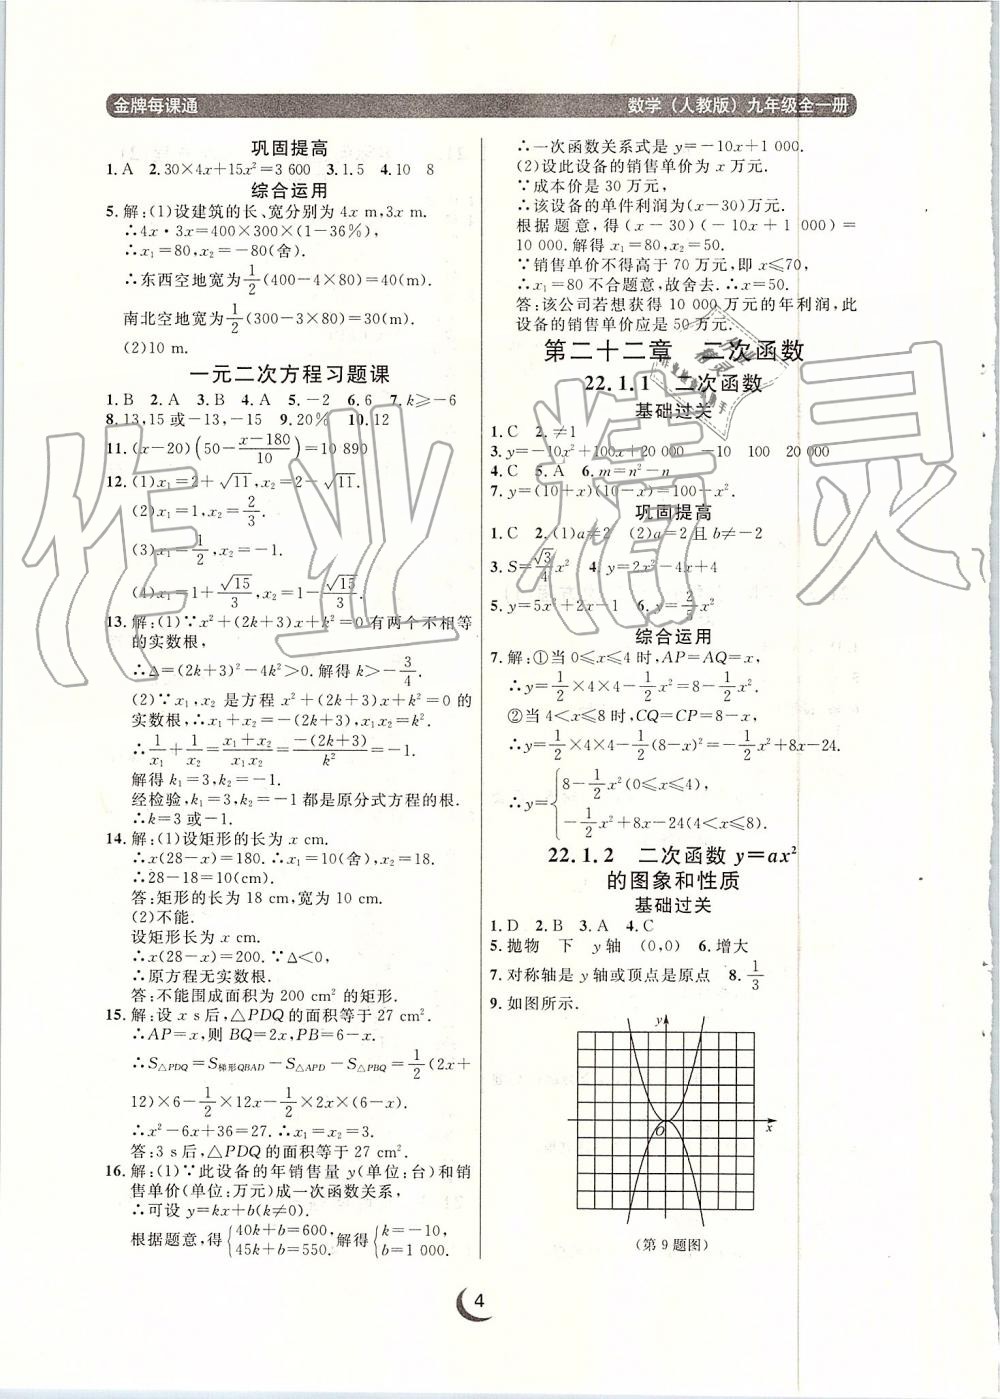 金牌每课通
数学（人教版）九年级全一册
巩固提高
1.A 2.30×4x+15x²=3 600 3.1.5 4.10 8
综合运用
5.解:(1)设建筑的长、宽分别为4x m,3x m.
∴4x·3x=400×300×(1-36%),
∴x₁=80,x₂=-80(舍).
∴东西空地宽为1/2(400-4×80)=40(m).
南北空地宽为1/2(300-3×80)=30(m).
(2)10 m.
一元二次方程习题课
1.B 2.A 3.B 4.A 5.-2 6.6 7.k≥-6
8.13,15或-13,-15 9.20% 10.12
11.(x-20)(50-(x-180)/10)=10 890
12.(1)x₁=2+√11,x₂=2-√11.
(2)x₁=1,x₂=2/3.
(3)x₁=1/2,x₂=-1.
(4)x₁=1+√15/3,x₂=1-√15/3.
13.解:(1)∵x²+(2k+3)x+k²=0有两个不相等
的实数根,
∴Δ=(2k+3)²-4k²>0.解得k>-3/4.
(2)∵x₁,x₂是方程x²+(2k+3)x+k²=0的
实数根,∴x₁+x₂=-(2k+3),x₁x₂=k².
∴1/x₁+1/x₂=(x₁+x₂)/(x₁x₂)=-(2k+3)/k²=-1.
解得k₁=3,k₂=-1.
经检验,k₁=3,k₂=-1都是原分式方程的根.
∴k=3或-1.
14.解:(1)设矩形的长为x cm.
∴x(28-x)=180.∴x₁=10(舍),x₂=18.
∴28-18=10(cm).
答:矩形的长为18 cm,宽为10 cm.
(2)不能.
设矩形长为x cm.
∴x(28-x)=200.∵Δ<0,
∴原方程无实数根.
答:不能围成面积为200 cm²的矩形.
15.解:设x s后,△PDQ的面积等于27 cm².
∴AP=x,则BQ=2x,PB=6-x.
∴S△PDQ=S梯形QBAD-S△APD-S△PBQ=1/2(2x+
12)×6-1/2×12x-1/2×2x×(6-x)=27.
∴x²-6x+36=27.∴x₁=x₂=3.
答:3 s后,△PDQ的面积等于27 cm².
16.解:(1)∵此设备的年销售量y(单位:台)和销
售单价(单位:万元)成一次函数关系,
∴可设y=kx+b(k≠0).
根据题意,得{40k+b=600, 45k+b=550. 解得{k=-10, b=1 000.
∴一次函数关系式是y=-10x+1 000.
(2)设此设备的销售单价为x万元.
∵成本价是30万元,
∴该设备的单件利润为(x-30)万元.
根据题意,得(x-30)(-10x+1 000)=
10 000.解得x₁=80,x₂=50.
∵销售单价不得高于70万元,即x≤70,
∴x₁=80不合题意,故舍去.∴x=50.
答:该公司若想获得10 000万元的年利润,此
设备的销售单价应是50万元.
第二十二章 二次函数
22.1.1 二次函数
基础过关
1.C 2.≠1
3.y=-10x²+100x+20 000 -10 100 20 000
4.C 5.A 6.m=n²-n
7.y=(10+x)(10-x)=100-x².
巩固提高
1.C 2.(1)a≠2 (2)a=2且b≠-2
3.S=√3/4x² 4.y=2x²-4x+4
6.y=2/5x²
综合运用
7.解:①当0≤x≤4时,AP=AQ=x,
∴y=1/2×4×4-1/2x²=8-1/2x².
②当4<x≤8时,CQ=CP=8-x,
∴y=1/2×4×4-1/2(8-x)²=-1/2x²+8x-24.
∴y={8-1/2x²(0≤x≤4),
-1/2x²+8x-24(4<x≤8).
22.1.2 二次函数y=ax²
的图象和性质
基础过关
1.D 2.B 3.A 4.C
5.抛物 下 y轴 (0,0) 6.增大
7.对称轴是y轴或顶点是原点 8.1/3
9.如图所示.
y
O
x
(第9题图)
4
作业精灵